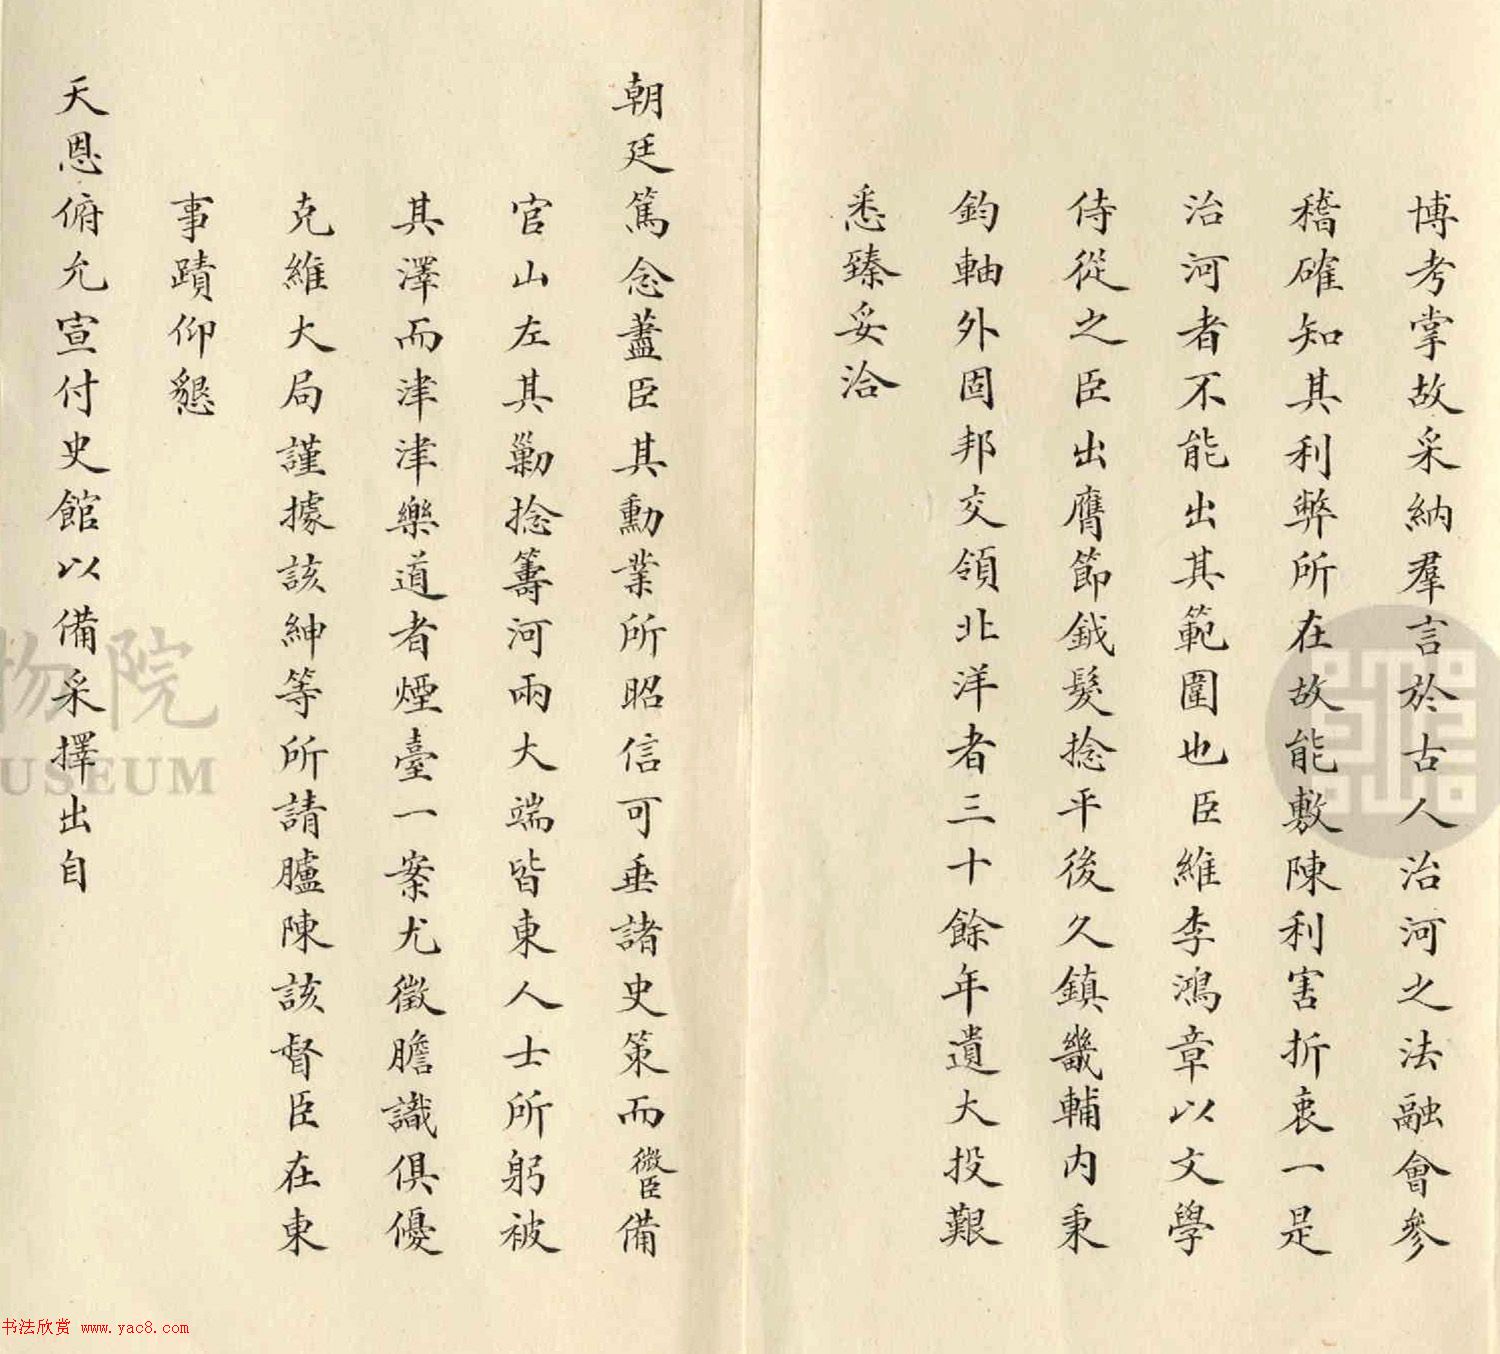 博考掌故采納羣言於古人治河之法融會參
稽確知其利弊所在故能敷陳利害折衷一是
治河者不能出其範圍也臣維李鴻章以文學
侍從之臣出膺節鉞髮捻平後久鎮畿輔内秉
鈞軸外固邦交領北洋者三十餘年遺大投艱
悉臻妥洽
朝廷篤念藎臣其勳業所昭信可垂諸史策而微臣備
官山左其勦捻籌河兩大端皆東人士所躬被
其澤而津津樂道者煙臺一案尤徵膽識俱優
克維大局謹據該紳等所請臚陳該督臣在東
事蹟仰懇
天恩俯允宣付史館以備采擇出自
物院
USEUM
书法欣赏 www.yac8.com